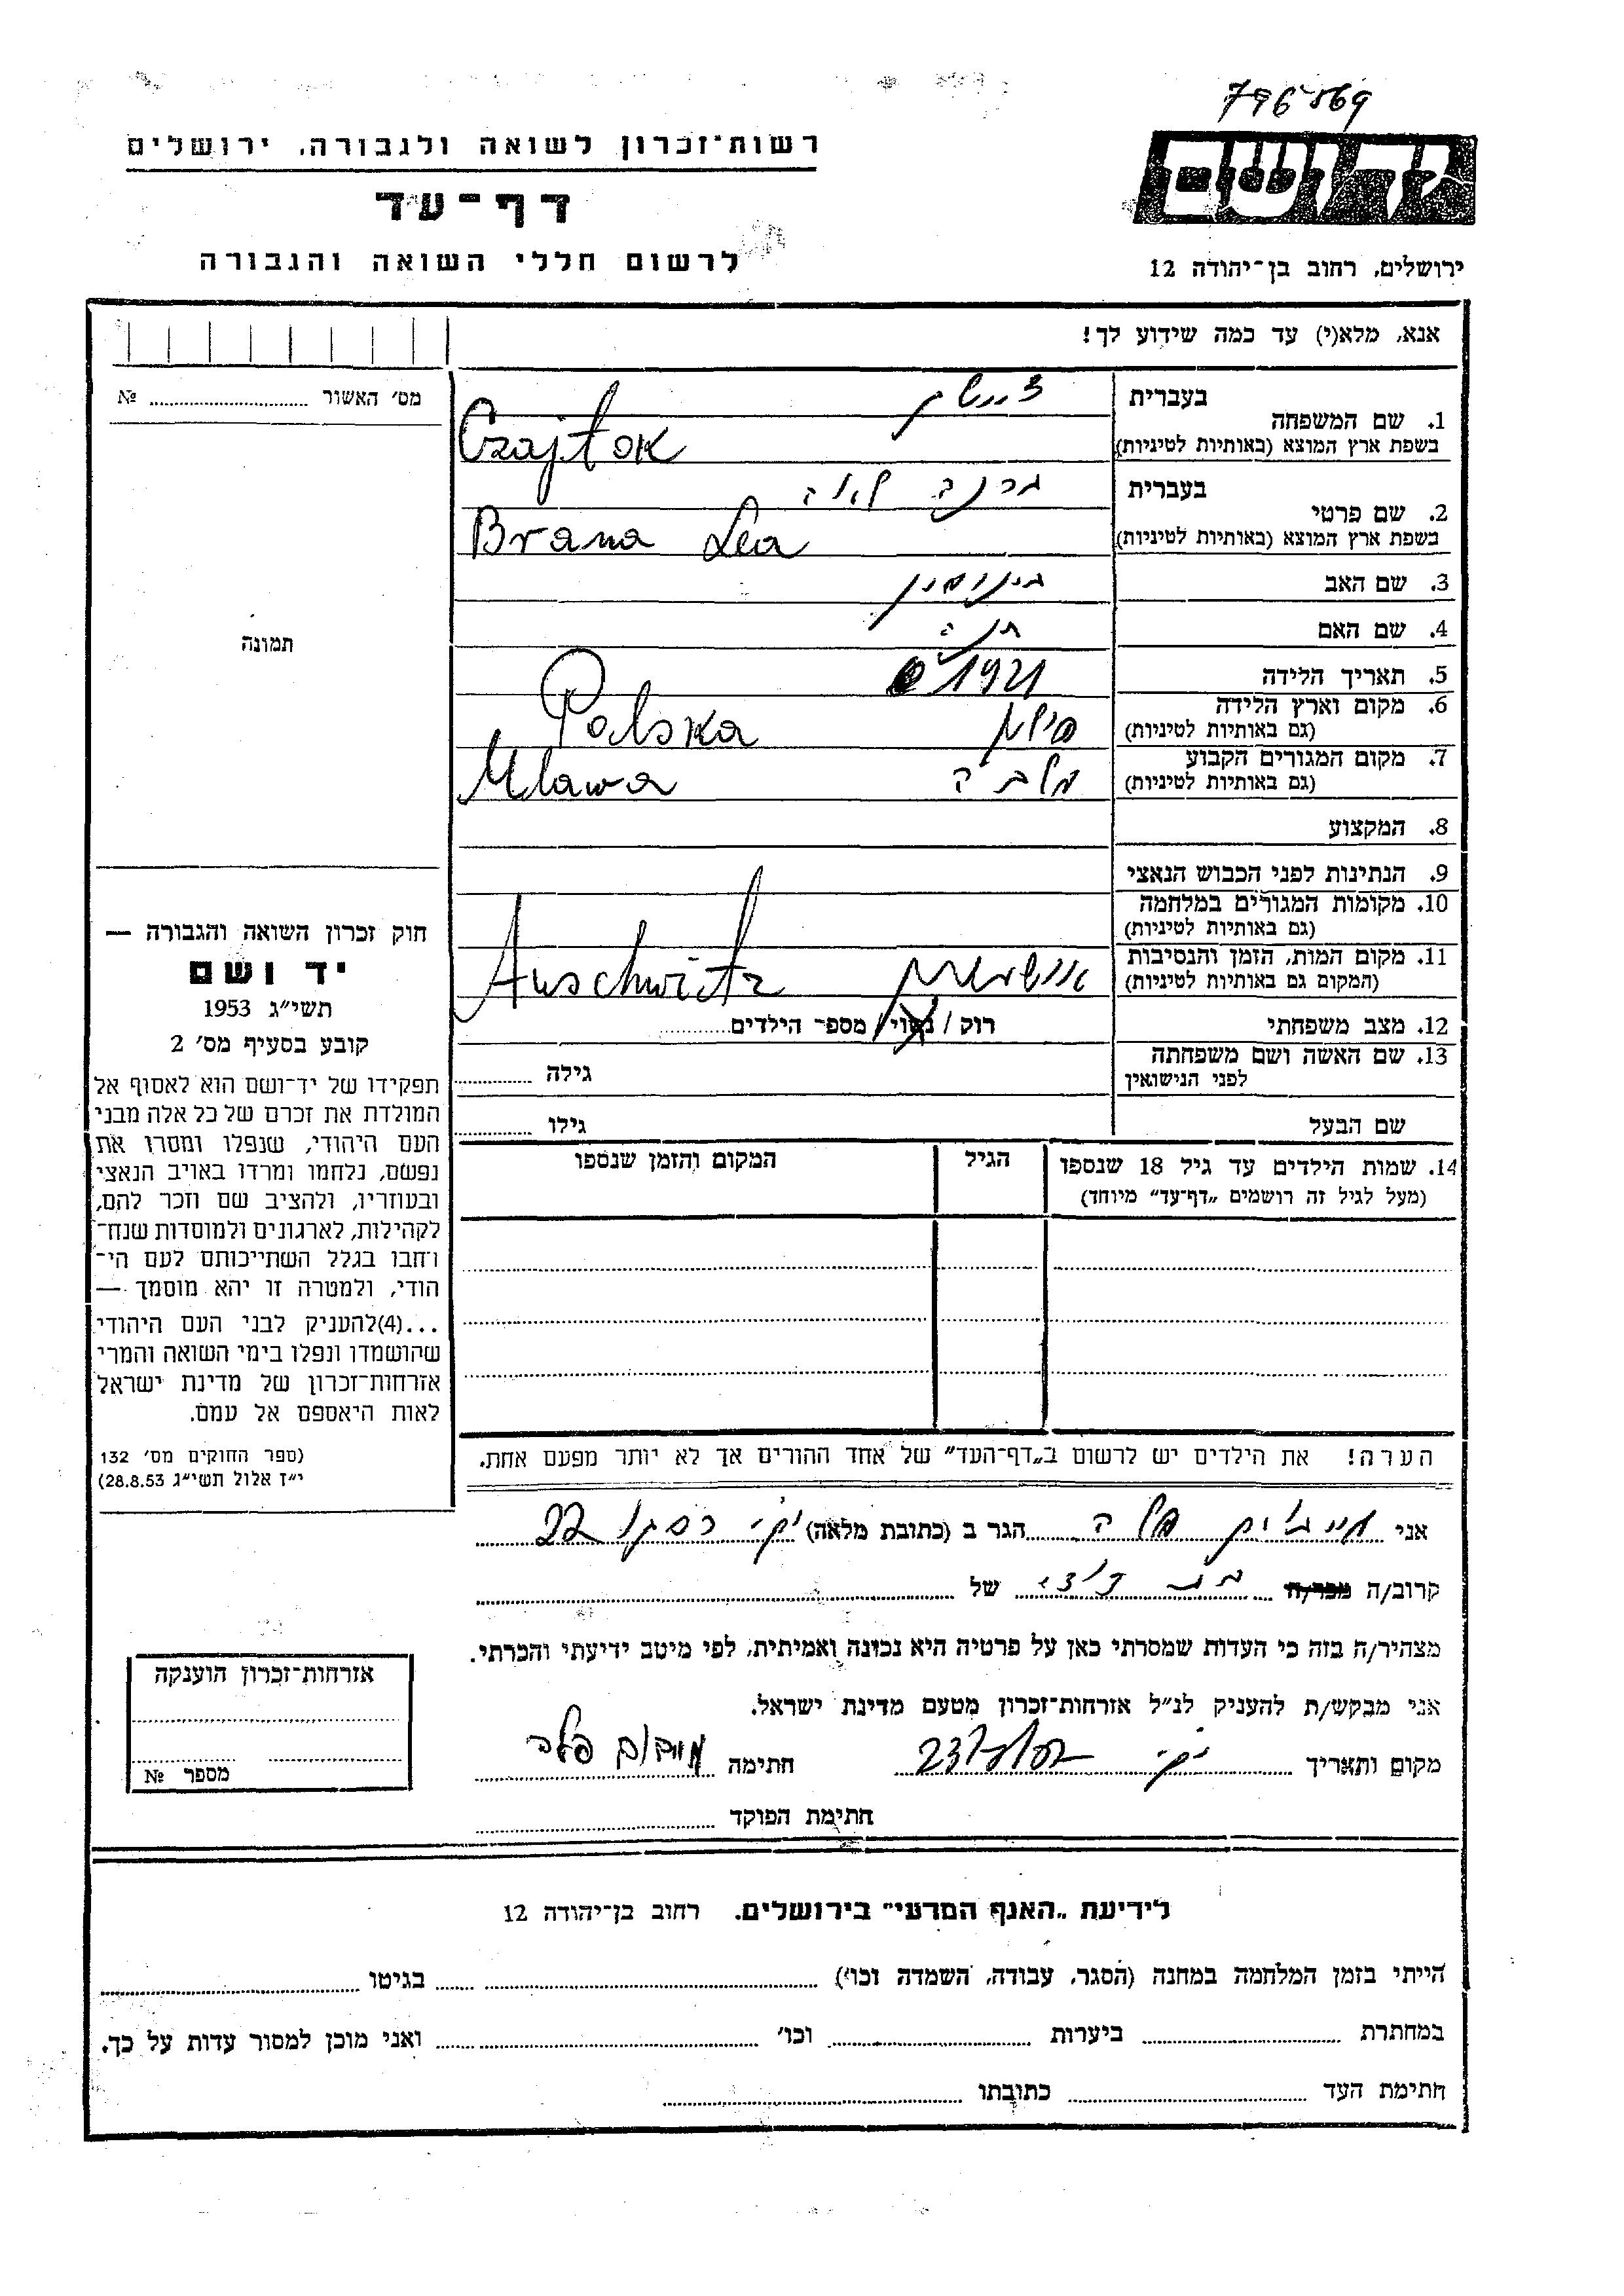 רשות־זכרון לשואה ולגבורה, ירושלים
דף־עד
לרשום חללי השואה והגבורה
יד ושם
ירושלים, רחוב בן־יהודה 12
אנא, מלא(י) עד כמה שידוע לך!
מס' האשור № 
תמונה
בעברית
1. שם המשפחה
בשפת ארץ המוצא (באותיות לטיניות) Czajtok
בעברית ברנה לאה
2. שם פרטי
בשפת ארץ המוצא (באותיות לטיניות) Brana Lea
3. שם האב בינימין
4. שם האם חנה
5. תאריך הלידה 1921
6. מקום וארץ הלידה
(גם באותיות לטיניות) פולין Polska
7. מקום המגורים הקבוע
(גם באותיות לטיניות) מלבה Mlawa
8. המקצוע
9. הנתינות לפני הכבוש הנאצי
10. מקומות המגורים במלחמה
(גם באותיות לטיניות)
11. מקום המות, הזמן והנסיבות
(המקום גם באותיות לטיניות) אושויץ Auschwitz
12. מצב משפחתי רוק / נשוי / מספר הילדים
13. שם האשה ושם משפחתה
לפני הנישואין גילה
שם הבעל גילו
14. שמות הילדים עד גיל 18 שנספו הגיל המקום והזמן שנספו
(מעל לגיל זה רושמים „דף־עד" מיוחד)
הערה! את הילדים יש לרשום ב„דף־העד" של אחד ההורים אך לא יותר מפעם אחת.
חוק זכרון השואה והגבורה —
יד ושם
תשי"ג 1953
קובע בסעיף מס' 2
תפקידו של יד־ושם הוא לאסוף אל
המולדת את זכרם של כל אלה מבני
העם היהודי, שנפלו ומסרו את
נפשם, נלחמו ומרדו באויב הנאצי
ובעוזריו, ולהציב שם וזכר להם,
לקהילות, לארגונים ולמוסדות שנח־
רבו בגלל השתייכותם לעם הי־
הודי, ולמטרה זו יהא מוסמך —
...(4)להעניק לבני העם היהודי
שהושמדו ונפלו בימי השואה והמרי
אזרחות־זכרון של מדינת ישראל
לאות היאספם אל עמם.
(ספר החוקים מס' 132
י"ז אלול תשי"ג 28.8.53)
אני הגר ב (כתובת מלאה) 22
קרוב/ה מכר/ה בת דודה של
מצהיר/ה בזה כי העדות שמסרתי כאן על פרטיה היא נכונה ואמיתית, לפי מיטב ידיעתי והכרתי.
אני מבקש/ת להעניק לנ"ל אזרחות־זכרון מטעם מדינת ישראל.
מקום ותאריך חתימה
חתימת הפוקד
אזרחות־זכרון הוענקה
מספר №
לידיעת „האגף המדעי" בירושלים. רחוב בן־יהודה 12
הייתי בזמן המלחמה במחנה (הסגר, עבודה, השמדה וכו') בגיטו
במחתרת ביערות וכו' ואני מוכן למסור עדות על כך.
חתימת העד כתובתו